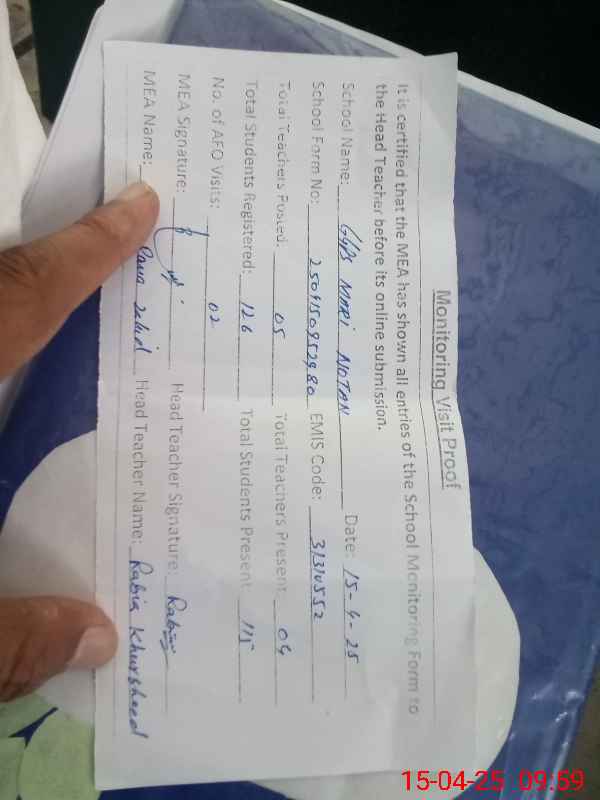 Monitoring Visit Proof
It is certified that the MEA has shown all entries of the School Monitoring Form to
the Head Teacher before its online submission.
School Name: GGPS MORI NOTAN Date: 15-4-25
School Form No: 250415095298O EMIS Code: 31310552
Total Teachers Posted: 05 Total Teachers Present 04
Total Students Registered: 126 Total Students Present 115
No. of AEO Visits: 02
MEA Signature: Head Teacher Signature: Rabia
MEA Name: Rana Zahid Head Teacher Name: Rabia Khursheed
15-04-25 09:59